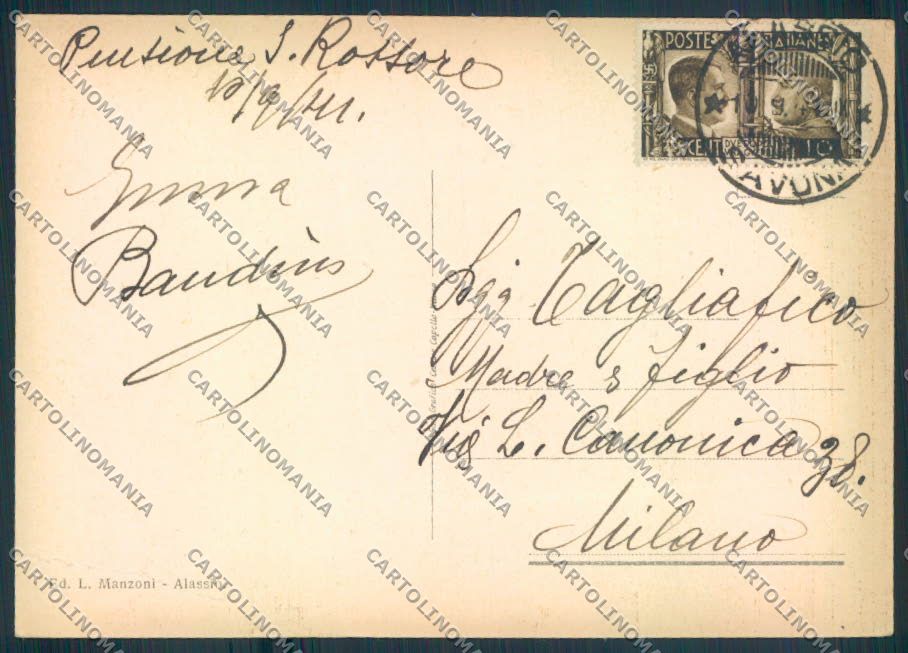 Pensione S. Rossore
10/9/41.
Emma
Baudino
POSTE ITALIANE
CENT 10
SAVONA
Sigg Tagliafico
Madre e figlio
Via L. Canonica 38.
Milano
Ed. L. Manzoni - Alassio
CARTOLINOMANIA